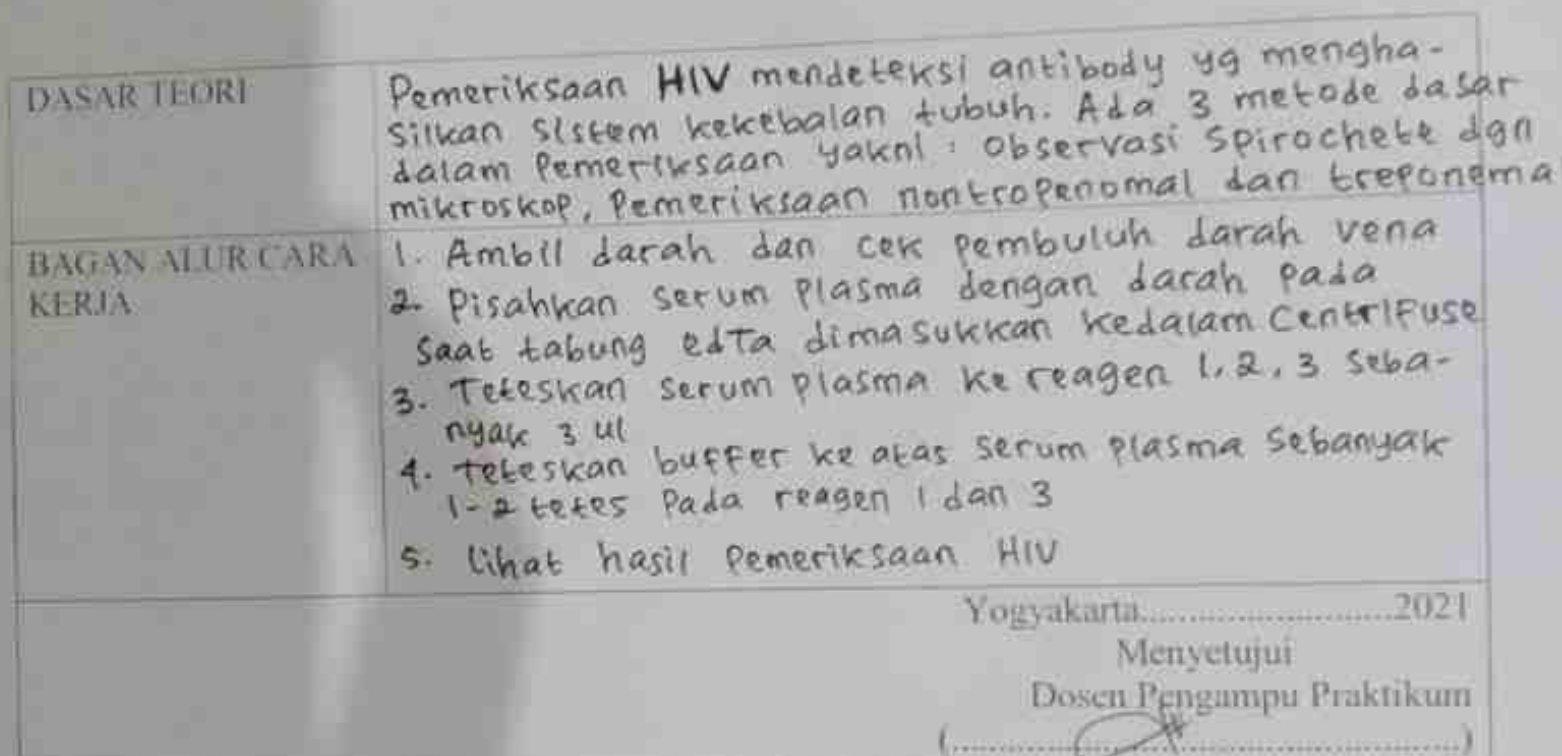 DASAR TEORI
Pemeriksaan HIV mendeteksi antibody yg mengha-
silkan sistem kekebalan tubuh. Ada 3 metode dasar
dalam Pemeriksaan yakni : Observasi Spirochete dgn
mikroskop, Pemeriksaan nontropenomal dan treponema
BAGAN ALUR CARA
KERJA
1. Ambil darah dan cek pembuluh darah vena
2. Pisahkan serum plasma dengan darah pada
saat tabung edTa dimasukkan kedalam Centrifuse
3. Teteskan serum plasma ke reagen 1, 2, 3 seba-
nyak 3 ul
4. teteskan buffer ke atas serum plasma sebanyak
1-2 tetes Pada reagen 1 dan 3
5. lihat hasil Pemeriksaan HIV
Yogyakarta..........................2021
Menyetujui
Dosen Pengampu Praktikum
(......................................................)